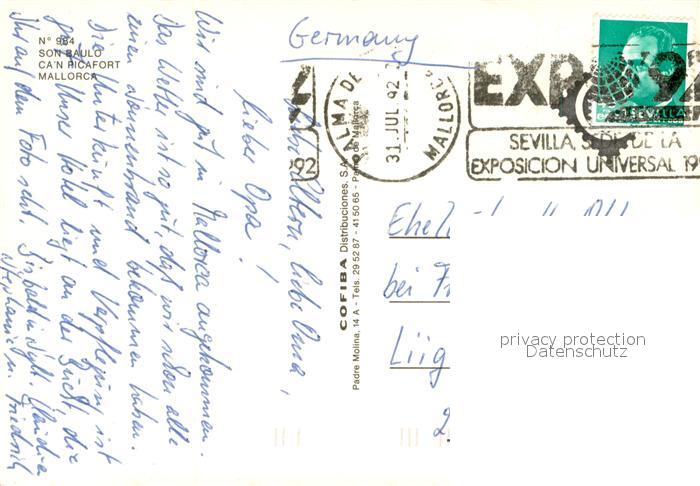 Nº 984
SON BAULO
CA'N PICAFORT
MALLORCA
Germany
PALMA DE MALLORCA
31 JUL 92
EXPO 92
SEVILLA
SEVILLA, SEDE DE LA
EXPOSICION UNIVERSAL 19
92
COFIBA Distribuciones, S.A.
Padre Molina, 14 A - Tels. 29 52 87 - 41 50 65 - Palma de Mallorca
Liebe Eltern, liebe Oma,
lieber Opa!
Wir sind gut in Mallorca angekommen.
Das Wetter ist so gut, daß wir schon alle
einen Sonnenbrand bekommen haben.
Die Unterkunft und Verpflegung ist
gut. Unser Hotel liegt an der Bucht, die
Ihr auf dem Foto seht. Bis bald in
Claudia
Stephanie u. Friedrich
bei
2
privacy protection
Datenschutz